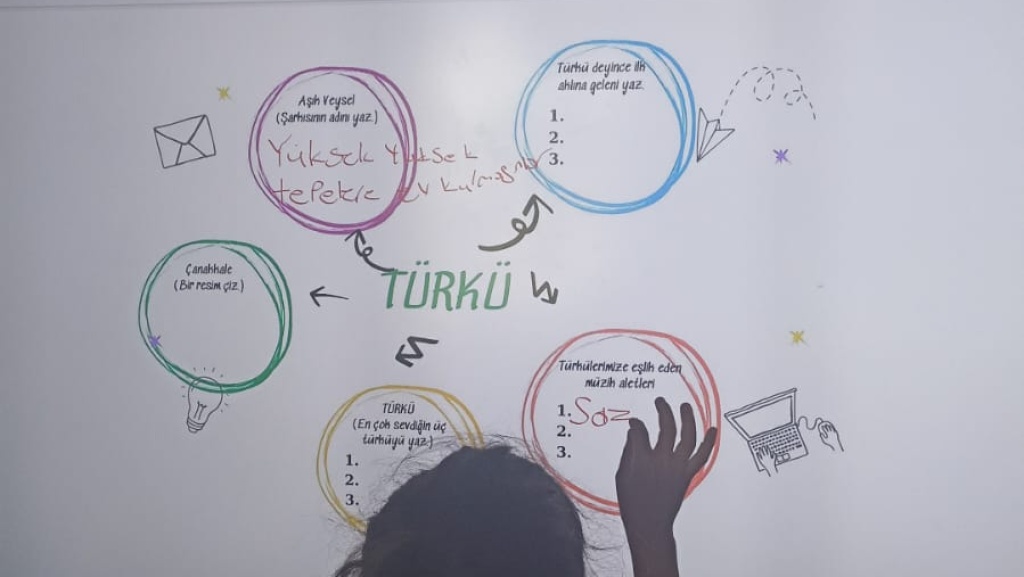 Aşık Veysel
(Şarkısının adını yaz.)
Yüksek Yüksek
tepelere ev kurmasınlar
Türkü deyince ilk
aklına geleni yaz.
1.
2.
3.
Çanakkale
(Bir resim çiz.)
TÜRKÜ
TÜRKÜ
(En çok sevdiğin üç
türküyü yaz.)
1.
2.
3.
Türkülerimize eşlik eden
müzik aletleri
1. Saz
2.
3.